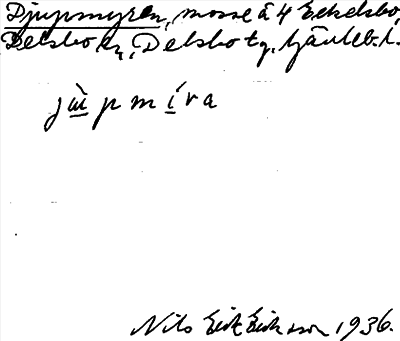 Djupmyren, mosse å 4 Eckelsbo,
Delsbo sn, Delsbo tg, Gävleb. l.
jùpmíra
Nils Erik Eriksson 1936.